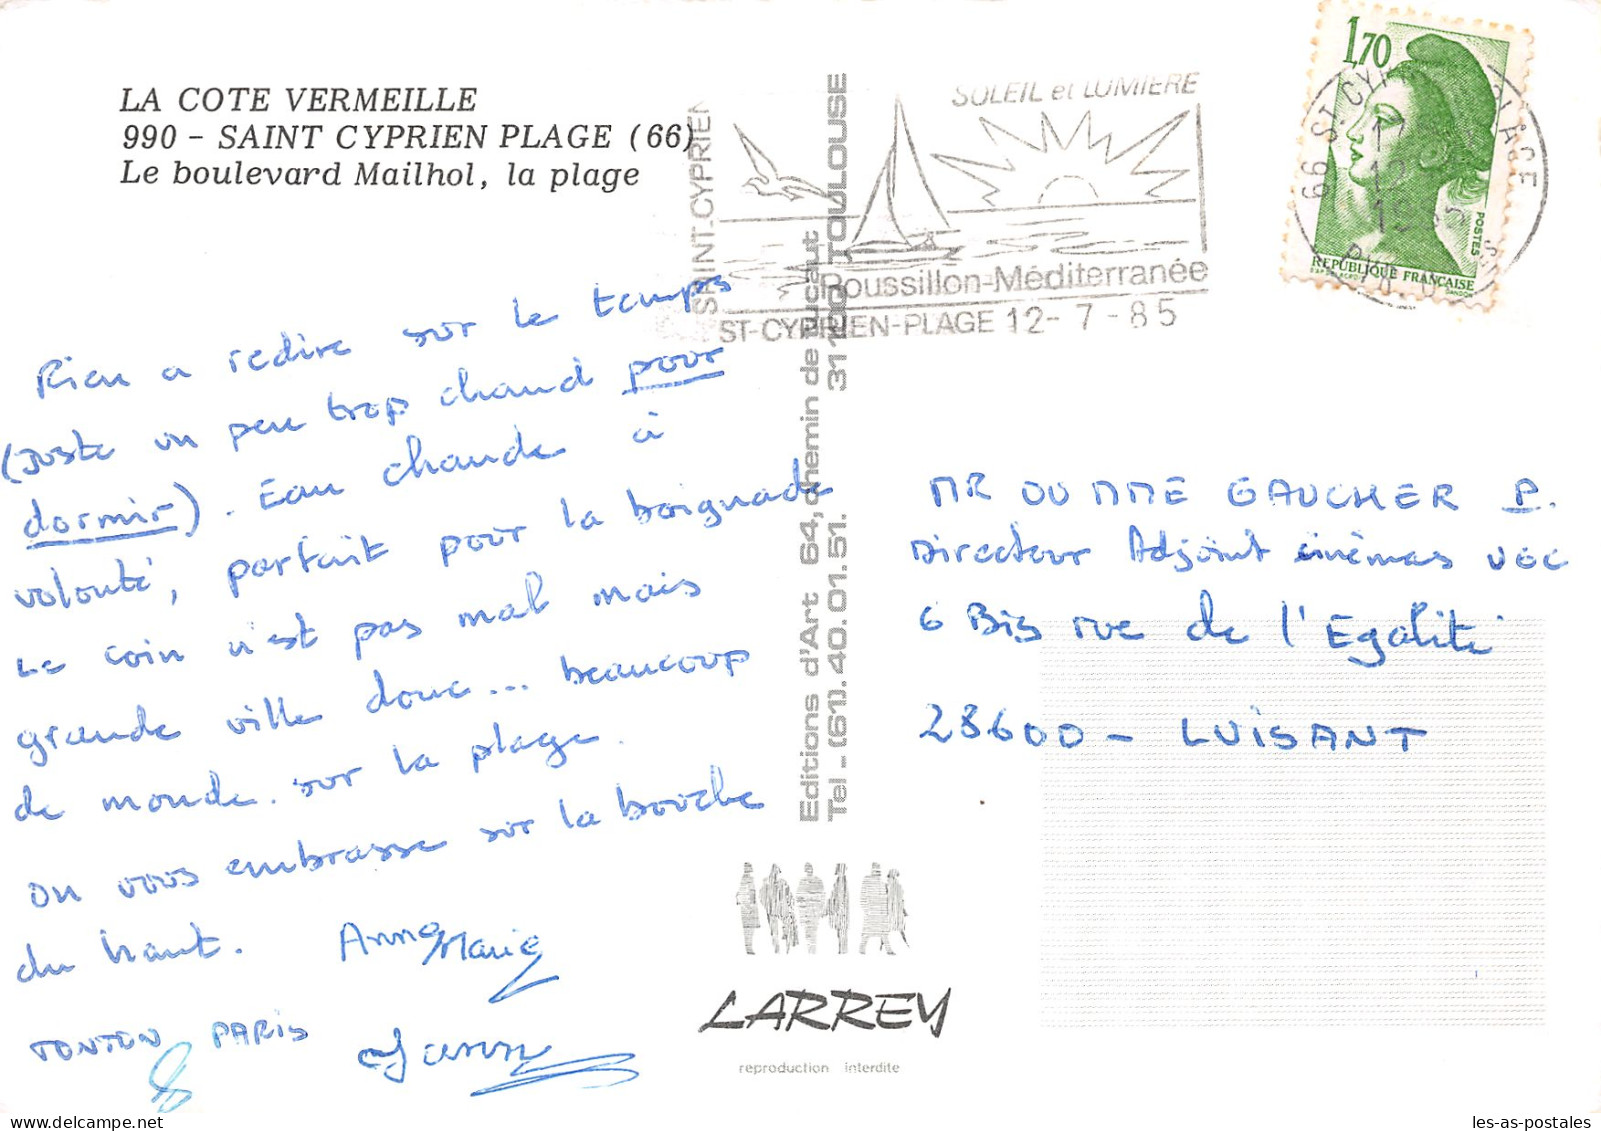 LA COTE VERMEILLE
990 - SAINT CYPRIEN PLAGE (66)
Le boulevard Mailhol, la plage
SAINT-CYPRIEN
SOLEIL et LUMIERE
Roussillon-Méditerranée
ST-CYPRIEN-PLAGE 12-7-85
1,70
POSTES
REPUBLIQUE FRANÇAISE
66 ST CYPRIEN PLAGE
12
Rien a redire sur le temps
(Juste un peu trop chaud pour
dormir). Eau chaude à
volonté, parfait pour la baignade
Le coin n'est pas mal mais
grande ville donc... beaucoup
de monde sur la plage.
On vous embrasse sur la bouche
du haut. Anne Marie
TONTON PARIS
Editions d'Art 64, chemin de Tucaut
Tel - (61). 40.01.51. 31100 TOULOUSE
MR OU MME GAUCHER P.
Directeur Adjoint cinémas UGC
6 Bis rue de l'Egalité
28600 - LUISANT
LARREY
reproduction interdite
les-as-postales